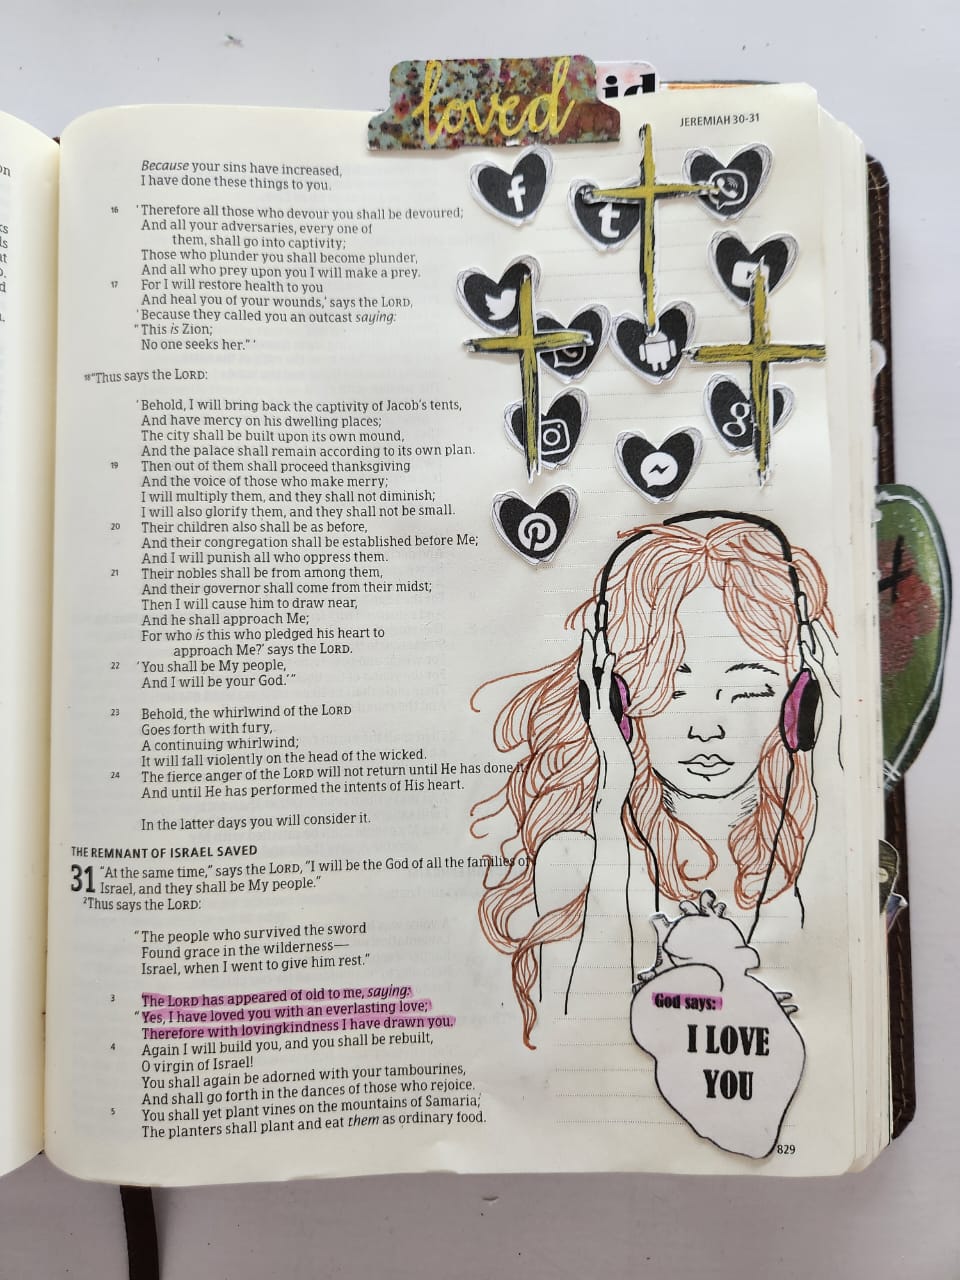 loved
id
JEREMIAH 30-31
Because your sins have increased,
I have done these things to you.
16 ‘Therefore all those who devour you shall be devoured;
And all your adversaries, every one of
them, shall go into captivity;
Those who plunder you shall become plunder,
And all who prey upon you I will make a prey.
17 For I will restore health to you
And heal you of your wounds,’ says the LORD,
‘Because they called you an outcast saying:
“This is Zion;
No one seeks her.” ’
18 “Thus says the LORD:
‘Behold, I will bring back the captivity of Jacob’s tents,
And have mercy on his dwelling places;
The city shall be built upon its own mound,
And the palace shall remain according to its own plan.
19 Then out of them shall proceed thanksgiving
And the voice of those who make merry;
I will multiply them, and they shall not diminish;
I will also glorify them, and they shall not be small.
20 Their children also shall be as before,
And their congregation shall be established before Me;
And I will punish all who oppress them.
21 Their nobles shall be from among them,
And their governor shall come from their midst;
Then I will cause him to draw near,
And he shall approach Me;
For who is this who pledged his heart to
approach Me?’ says the LORD.
22 ‘You shall be My people,
And I will be your God.’ ”
23 Behold, the whirlwind of the LORD
Goes forth with fury,
A continuing whirlwind;
It will fall violently on the head of the wicked.
24 The fierce anger of the LORD will not return until He has done it,
And until He has performed the intents of His heart.
In the latter days you will consider it.
THE REMNANT OF ISRAEL SAVED
31 “At the same time,” says the LORD, “I will be the God of all the families of
Israel, and they shall be My people.”
2 Thus says the LORD:
“The people who survived the sword
Found grace in the wilderness—
Israel, when I went to give him rest.”
3 The LORD has appeared of old to me, saying:
“Yes, I have loved you with an everlasting love;
Therefore with lovingkindness I have drawn you.
4 Again I will build you, and you shall be rebuilt,
O virgin of Israel!
You shall again be adorned with your tambourines,
And shall go forth in the dances of those who rejoice.
5 You shall yet plant vines on the mountains of Samaria;
The planters shall plant and eat them as ordinary food.
God says:
I LOVE
YOU
829